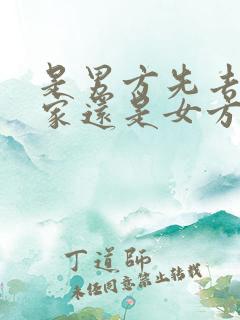 是男方先喜
家還是女方
丁道師
未經同意禁止轉載